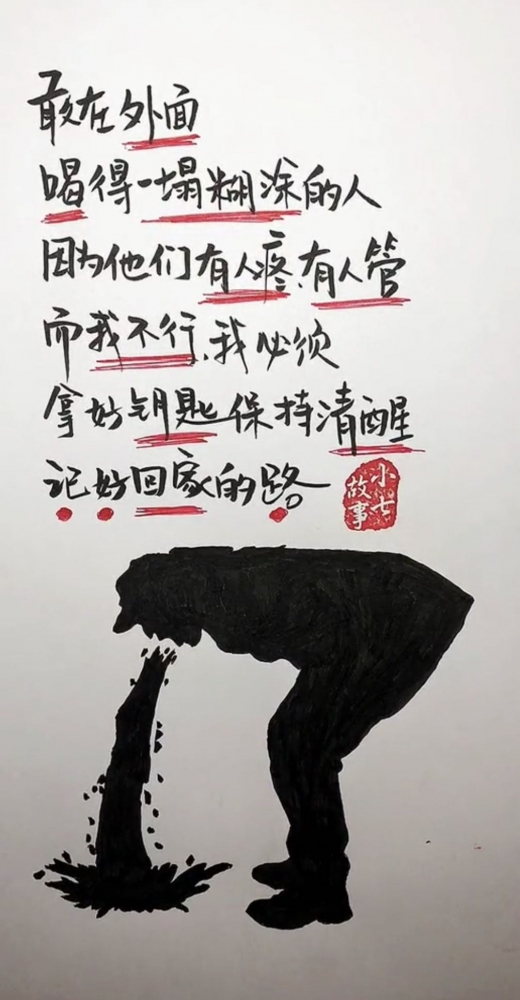 敢在外面
喝得一塌糊涂的人
因为他们有人疼、有人管
而我不行、我必须
拿好钥匙保持清醒
记好回家的路
小七
故事